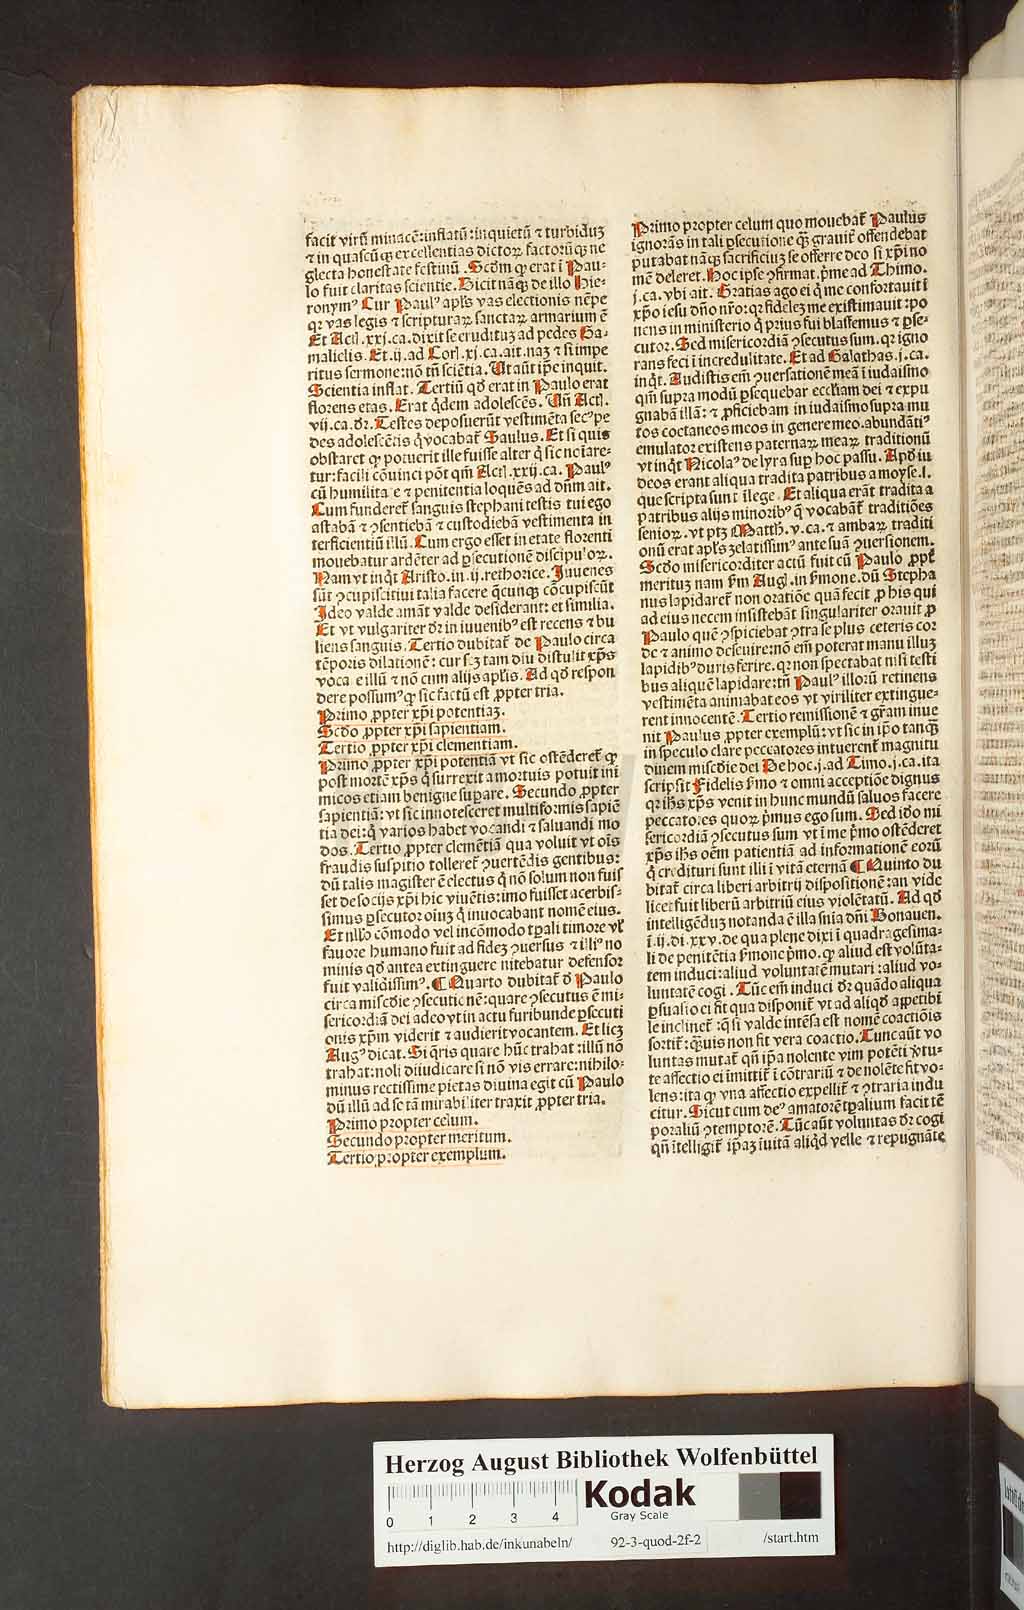 facit virū minacē: inflatū: inquietū ⁊ turbiduꝫ
⁊ in quascūqꝫ excellentias dictoꝝ factorūqꝫ ne
glecta honestate festinū. Scdm ꝙ erat ī Pau-
lo fuit claritas scientie. Dicit nāqꝫ de illo Hie-
ronymꝰ Cur Paulꝰ apl̄s vas electionis nēpe
qꝛ vas legis ⁊ scripturaꝝ sanctaꝝ armarium ē
Et Actl. xxj. ca. dixit se eruditum ad pedes Ga-
malielis. Et .ij. ad Corl. xj. ca. ait. naꝫ ⁊ si impe
ritus sermone: nō tn̄ sciētia. Ut aūt ip̄e inquit.
Scientia inflat. Tertiū qd̄ erat in Paulo erat
florens etas. Erat q̇dem adolescēs. Un̄ Actl.
vij. ca. dr̄. Testes deposuerūt vestimēta secꝰ pe
des adolescētis q̇ vocabat̄ Saulus. Et si quis
obstaret ꝙ potuerit ille fuisse alter q̇ sic notare-
tur: facili cōuinci pōt qm̄ Actl. xxij. ca. Paulꝰ
cū humilitate ⁊ penitentia loquēs ad dn̄m ait.
Cum funderet̄ sanguis stephani testis tui ego
astabā ⁊ ꝯsentiebā ⁊ custodiebā vestimenta in
terficientiū illū. Cum ergo esset in etate florenti
mouebatur ardēter ad ꝑsecutionē discipuloꝝ.
Nam vt inq̇t Aristo. in .ij. rethorice. Juuenes
sūt ꝯcupiscitiui talia facere q̇cunqꝫ cōcupiscūt
Ideo valde amāt valde desiderant: et similia.
Et vt vulgariter dr̄ in iuuenibꝰ est recens ⁊ bu
liens sanguis. Tertio dubitat̄ de Paulo circa
tēporis dilationē: cur scꝫ tam diu distulit xp̄s
vocare illū ⁊ nō cum alijs apl̄is. Ad qd̄ respon
dere possumꝰ ꝙ sic factū est ꝓpter tria.
Primo ꝓpter xp̄i potentiaꝫ.
Scdo ꝓpter xp̄i sapientiam.
Tertio ꝓpter xp̄i clementiam.
Primo ꝓpter xp̄i potentiā vt sic ostēderet̄ ꝙ
post mortē xp̄s q̇ surrexit a mortuis potuit ini
micos etiam benigne suꝑare. Secundo ꝓpter
sapientiā: vt sic innotesceret multiformis sapiē
tia dei: q̇ varios habet vocandi ⁊ saluandi mo
dos. Tertio ꝓpter clemētiā qua voluit vt ois̄
fraudis suspitio tolleret̄ ꝯuertēdis gentibus:
dū talis magister ē electus q̇ nō solum non fuis
set de socijs xp̄i hic viuētis: imo fuisset acerbis-
simus ꝑsecutor oīuꝫ q̇ inuocabant nomē eius.
Et nllo cōmodo vel incōmodo tꝑali timore vl̄
fauore humano fuit ad fideꝫ ꝯuersus ⁊ illiꝰ no
minis qd̄ antea extinguere nitebatur defensor
fuit validissimꝰ. ¶ Quarto dubitat̄ d̄ Paulo
circa miscd̄ie ꝯsecutionē: quare ꝯsecutus ē mi-
sericordiā dei adeo vt in actu furibunde ꝑsecuti
onis xp̄m viderit ⁊ audierit vocantem. Et licꝫ
Augꝰ dicat. Si q̇ris quare hūc trahat: illū nō
trahat: noli diiudicare si nō vis errare: nihilo-
minus rectissime pietas diuina egit cū Paulo
dū illū ad se tā mirabiliter traxit ꝓpter tria.
Primo propter celum.
Secundo propter meritum.
Tertio propter exemplum.
Primo propter celum quo mouebat̄ Paulus
ignorās in tali ꝑsecutione qꝫ grauit̄ offendebat
putabat nāqꝫ sacrificiuꝫ se offerre deo si xp̄i no
mē deleret. Hoc ipse ꝯfirmat. p̄me ad Thimo.
j. ca. vbi ait. Gratias ago ei q̇ me confortauit ī
xp̄o iesu dn̄o nr̄o: qꝛ fideleꝫ me existimauit: po
nens in ministerio q̇ prius fui blasfemus ⁊ ꝑse-
cutor. Sed misericordiā ꝯsecutus sum. qꝛ igno
rans feci ī incredulitate. Et ad Galathas .j. ca.
inq̇t. Audistis em̄ ꝯuersationē meā ī iudaismo
qm̄ supra modū ꝑsequebar eccl̄iam dei ⁊ expu
gnabā illā: ⁊ ꝓficiebam in iudaismo supra mu
ltos coetaneos meos in genere meo. abundātiꝰ
emulator existens paternaꝝ meaꝝ traditionū
vt inq̇t Nicolaꝰ de lyra suꝑ hoc passu. Apd̄ iu
deos erant aliqua tradita patribus a moyse .l.
que scripta sunt ī lege. Et aliqua erāt tradita a
patribus alijs minoribꝰ q̄ vocabāt̄ traditiões
senioꝝ. vt ptꝫ Matth. v. ca. ⁊ ambaꝝ traditi
onū erat apl̄s zelatissimꝰ ante suā ꝯuersionem.
Scd̄o misericorditer actū fuit cū Paulo ꝓpt̄
meritum nam s̄m Augl. in s̄mone. dū Stepha
nus lapidaret̄ non oratiōe quā fecit ꝓ his qui
ad eius necem insistebāt singulariter orauit ꝓ
Paulo quē ꝯspiciebat ꝯtra se plus ceteris cor
de ⁊ animo deseuire: nō em̄ poterat manu illuꝫ
lapidibꝰ duris ferire. qꝛ non spectabat nisi testi
bus aliquē lapidare: tn̄ Paulꝰ illorū retinens
vestimēta animabat eos vt viriliter extingue-
rent innocentē. Tertio remissionē ⁊ gr̄am inue
nit Paulus ꝓpter exemplū: vt sic in ip̄o tanqꝫ
in speculo clare peccatores intuerent̄ magnitu
dinem miscd̄ie dei De hoc .j. ad Timo. j. ca. ita
scripsit Fidelis s̄mo ⁊ omni acceptiōe dignus
qꝛ ih̄s xp̄s venit in hunc mundū saluos facere
peccatores quoꝝ p̄mus ego sum. Sed ido mi
sericordiā ꝯsecutus sum vt ī me p̄mo ostēderet
xp̄s ih̄s oēm patientiā ad informationē eorū
q̇ credituri sunt illi ī vitā eternā ¶ Quinto du
bitat̄ circa liberi arbitrij dispositionē: an vide
licet fuit liberū arbitriū eius violētatū. Ad qd̄
intelligēduꝫ notanda ē illa sn̄ia dn̄i Bonauen.
ī .ij. di. xxv. de qua plene dixi ī quadragesima-
li de penitētia s̄mone p̄mo. ꝙ aliud est volūta-
tem induci: aliud voluntatē mutari: aliud vo-
luntatē cogi. Tūc em̄ induci dr̄ quādo aliqua
ꝑsuasio ei fit qua disponit̄ vt ad aliqd̄ appetibī
le inclinet̄: q̇ si valde intēsa est nomē coactiōis
sortit̄: q̇uis non fit vera coactio. Tunc aūt vo
luntas mutat̄ qn̄ ip̄a nolente vim potēti ꝟtu-
te affectio ei īmittit̄ ī cōtrariū ⁊ de nolēte fit vo-
lens: ita ꝙ vna affectio expellit̄ ⁊ ꝯtraria indu
citur. Sicut cum deꝰ amatorē tꝑalium facit tē
poraliū ꝯtemptorē. Tūc aūt voluntas dr̄ cogi
qn̄ ītelligit̄ ip̄aꝫ īuitā aliq̇d velle ⁊ repugnāte
Herzog August Bibliothek Wolfenbüttel
0 1 2 3 4
Kodak
Gray Scale
http://diglib.hab.de/inkunabeln/ 92-3-quod-2f-2 /start.htm